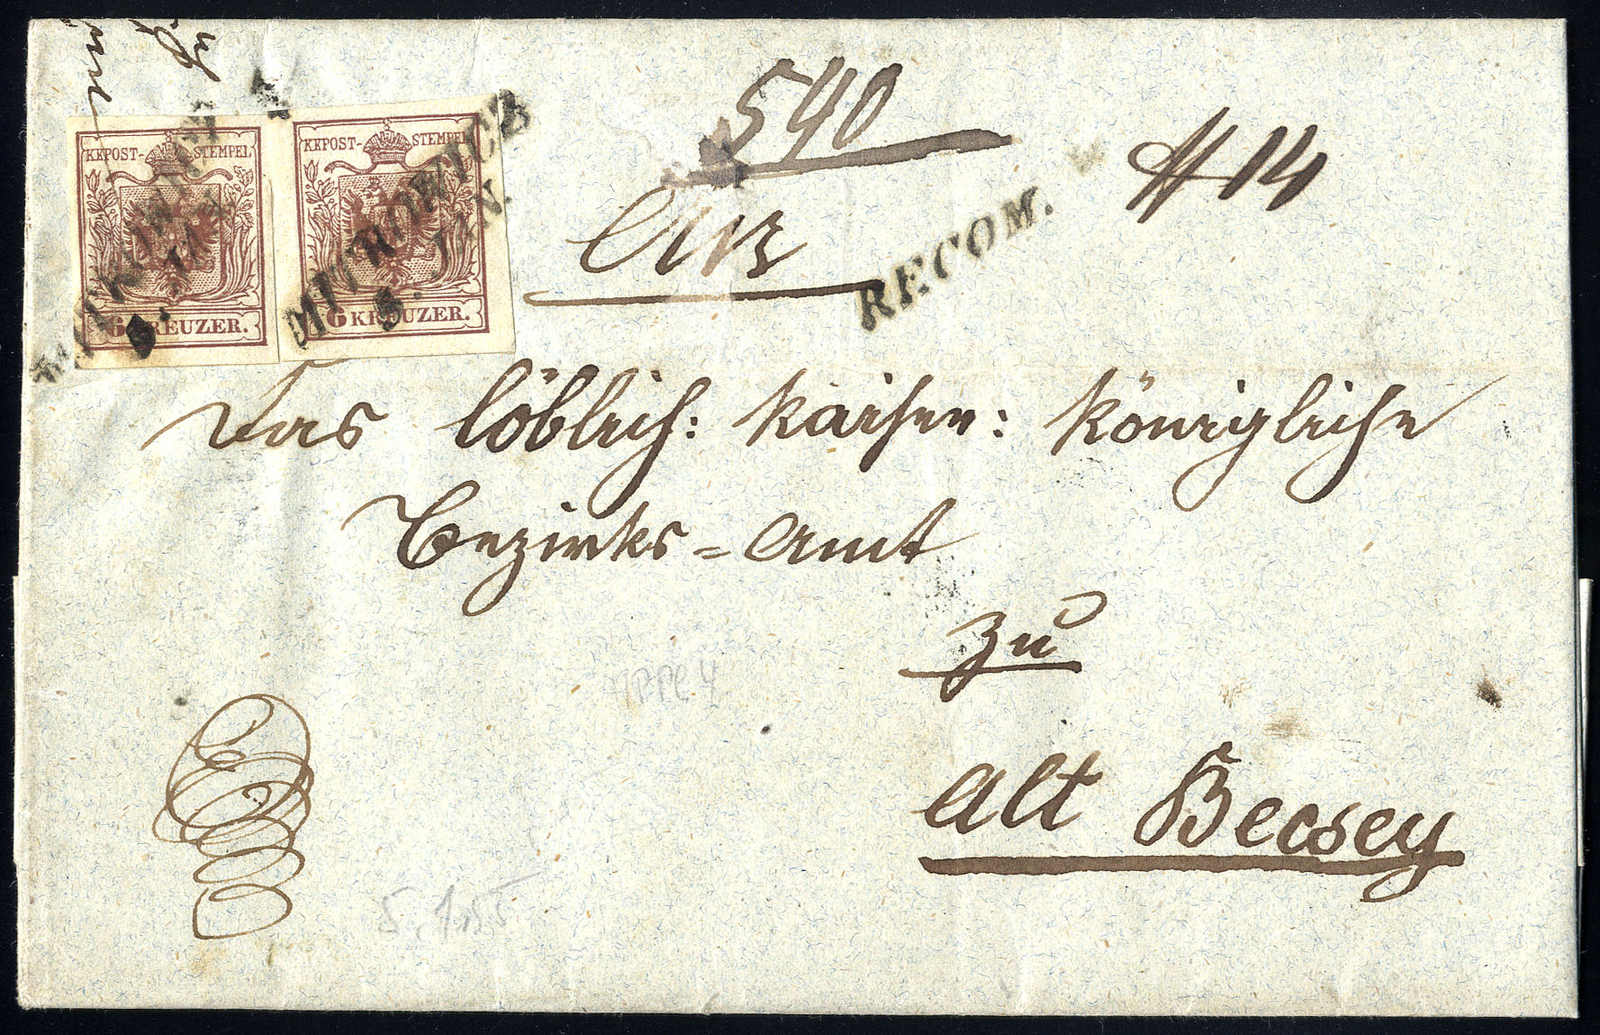 540
# 14
KKPOST-STEMPEL
6 KREUZER.
KKPOST-STEMPEL
6 KREUZER.
MITROWICZ
5. JAN.
MITROWICZ
5. JAN.
RECOM.
Das löblich: kaiser: königliche
Bezirks = Amt
zu
Alt Becsey
5.1.55